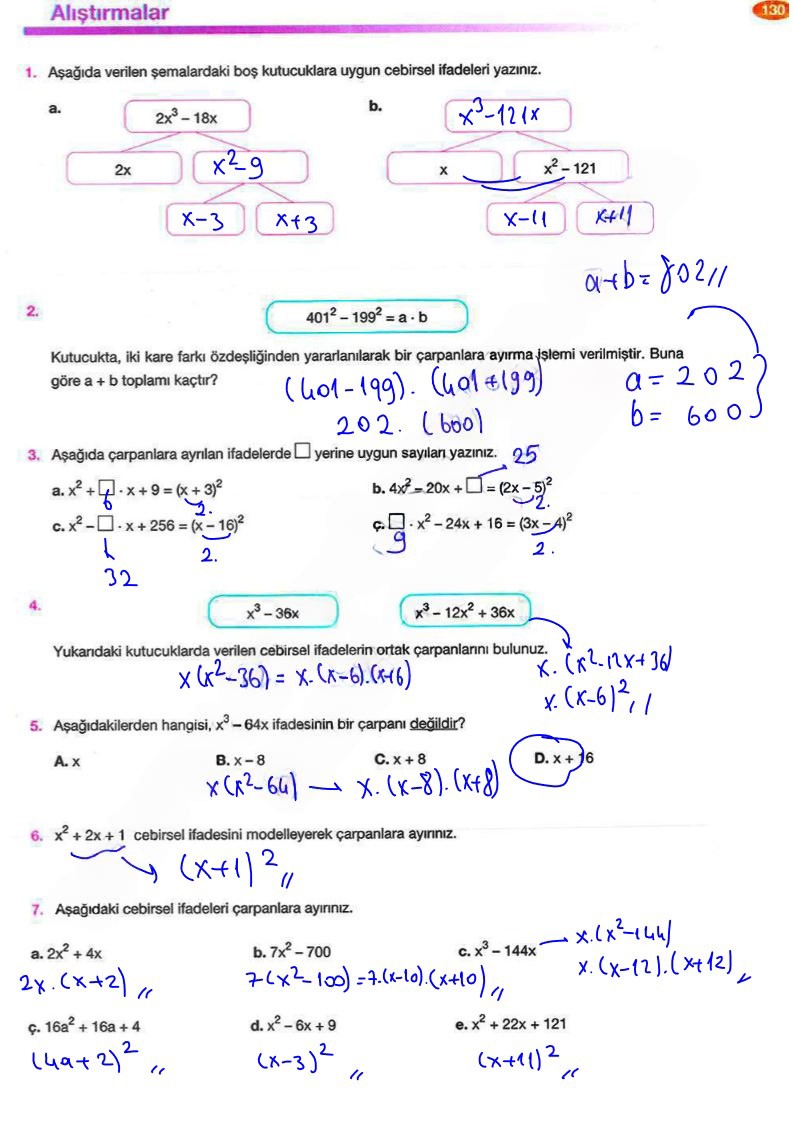 Alıştırmalar 130
1. Aşağıda verilen şemalardaki boş kutucuklara uygun cebirsel ifadeleri yazınız.
a. 2x³ – 18x b. x³-121x
2x x²-9 x x² – 121
x-3 x+3 x-11 x+11
a+b= 802//
2. 401² – 199² = a · b
Kutucukta, iki kare farkı özdeşliğinden yararlanılarak bir çarpanlara ayırma işlemi verilmiştir. Buna
göre a + b toplamı kaçtır?
(401-199). (401+199) a = 202
202. (600) b = 600
3. Aşağıda çarpanlara ayrılan ifadelerde □ yerine uygun sayıları yazınız. 25
a. x² + □ · x + 9 = (x + 3)² b. 4x² – 20x + □ = (2x – 5)²
6 2. 2.
c. x² – □ · x + 256 = (x – 16)² ç. □ · x² – 24x + 16 = (3x – 4)²
32 2. 9 2.
4. x³ – 36x x³ – 12x² + 36x
Yukarıdaki kutucuklarda verilen cebirsel ifadelerin ortak çarpanlarını bulunuz.
x(x²-36) = x.(x-6).(x+6) x.(x²-12x+36)
x.(x-6)²,,
5. Aşağıdakilerden hangisi, x³ – 64x ifadesinin bir çarpanı değildir?
A. x B. x – 8 C. x + 8 D. x + 16
x(x²-64) → x.(x-8).(x+8)
6. x² + 2x + 1 cebirsel ifadesini modelleyerek çarpanlara ayırınız.
(x+1)²,,
7. Aşağıdaki cebirsel ifadeleri çarpanlara ayırınız.
a. 2x² + 4x b. 7x² – 700 c. x³ – 144x x.(x²-144)
2x.(x+2),, 7(x²-100)=7.(x-10).(x+10),, x.(x-12).(x+12),,
ç. 16a² + 16a + 4 d. x² – 6x + 9 e. x² + 22x + 121
(4a+2)²,, (x-3)²,, (x+11)²,,